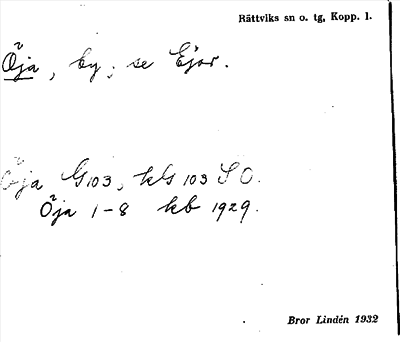 Rättviks sn o. tg, Kopp. l.
Öja, by; se Ejor.
Öja G103, kls 103 SO.
Öja 1-8 kb 1929.
Bror Lindén 1932